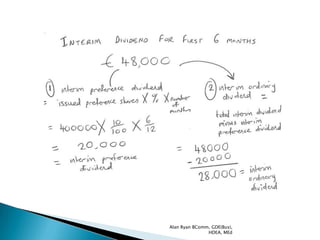 INTERIM DIVIDEND FOR FIRST 6 MONTHS
€ 48,000
① interim preference dividend
= issued preference shares X % X number of months
= 400000 X 10/100 X 6/12
= 20,000
= interim preference dividend
② interim ordinary dividend =
total interim dividend
minus interim
preference dividend
= 48000
- 20000
28,000 = interim ordinary dividend
Alan Ryan BComm, GDE(Bus),
HDEA, MEd